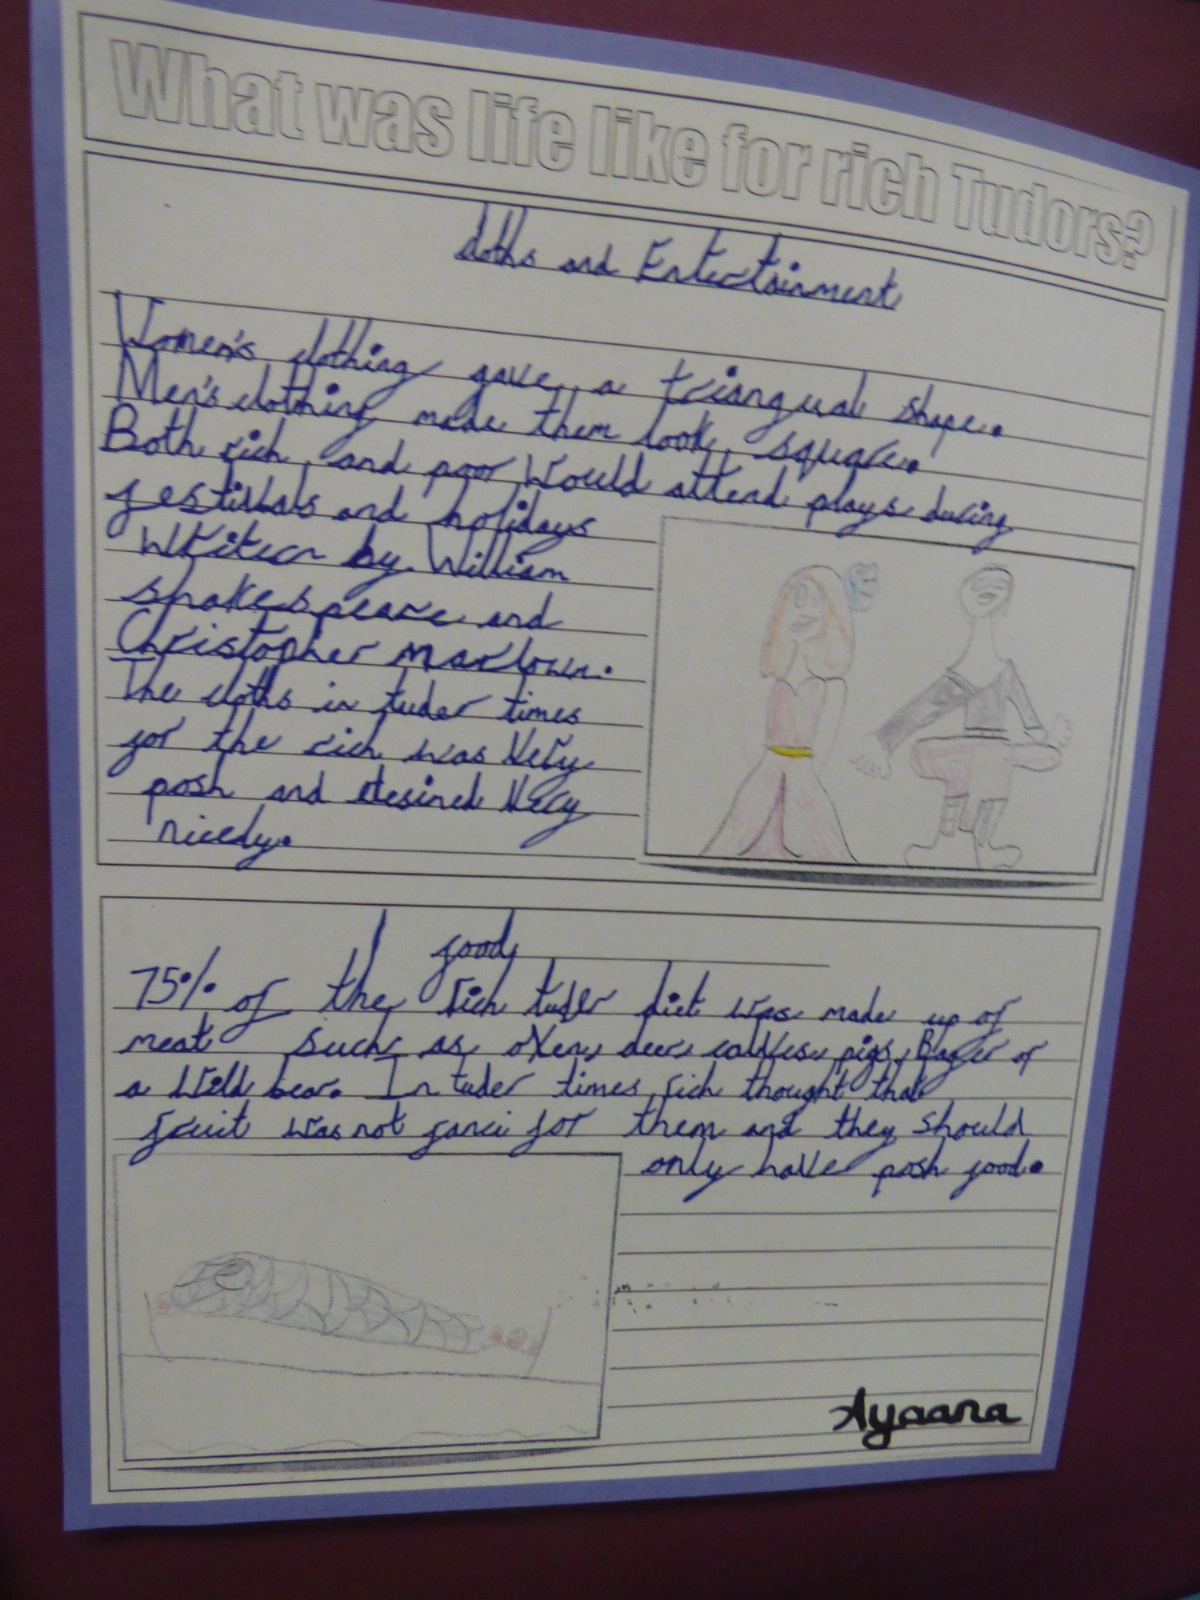 What was life like for rich Tudors?
cloths and Entertainment
Women's clothing gave a triangual shape.
Men's clothing made them look square.
Both rich, and poor Would attend plays during
festivals and holidays
Writen by William
shakespeare and
Christopher marlown.
The cloths in tuder times
for the rich was Very
posh and desined Very
nicely.
food
75% of the rich tuder diet was made up of
meat such as oxen, deer, calves, pigs, Bager or
a Wild boar. In tuder times, rich thought that
fruit was not fanci for them and they should
only have posh food.
Ayaana